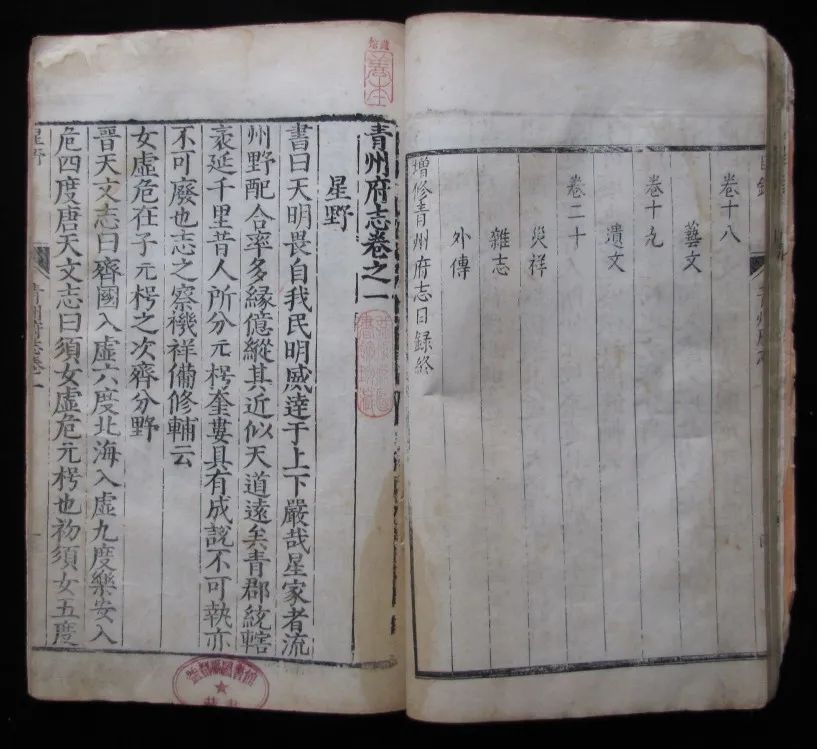 目錄
卷十八
藝文
卷十九
遺文
卷二十
災祥
雜志
外傳
增修青州府志目録終
青州府志卷之一
星野
書曰天明畏自我民明威達于上下嚴哉星家者流
州野配合率多緣億縱其近似天道遠矣青郡統轄
袤延千里昔人所分元枵奎婁具有成說不可執亦
不可廢也志之察禨祥備修輔云
女虛危在子元枵之次齊分野
晉天文志曰齊國入虛六度北海入虛九度樂安入
危四度唐天文志曰須女虛危元枵也初須女五度
星野
青州府志卷一
善本